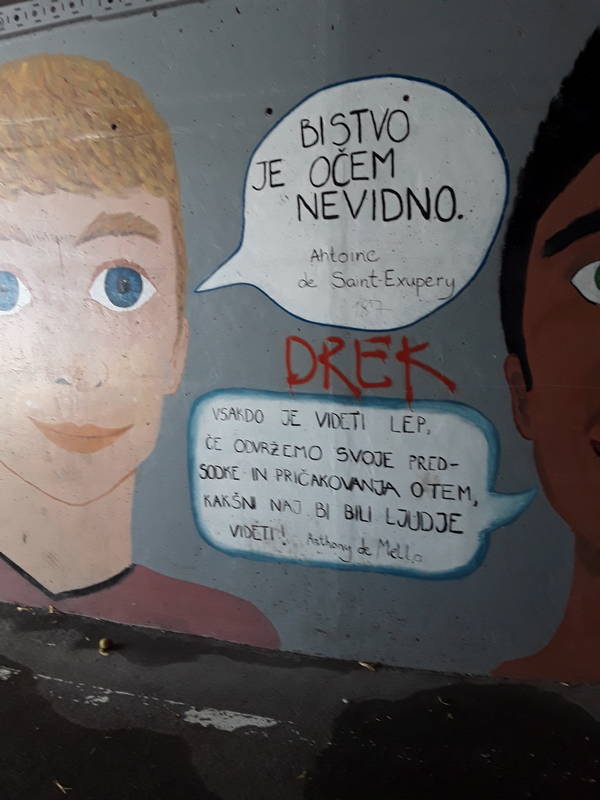 BISTVO
JE OČEM
NEVIDNO.
Antoine
de Saint-Exupery
DREK
VSAKDO JE VIDETI LEP,
ČE ODVRŽEMO SVOJE PRED-
SODKE IN PRIČAKOVANJA O TEM,
KAKŠNI NAJ BI BILI LJUDJE
VIDETI! Anthony de Mello